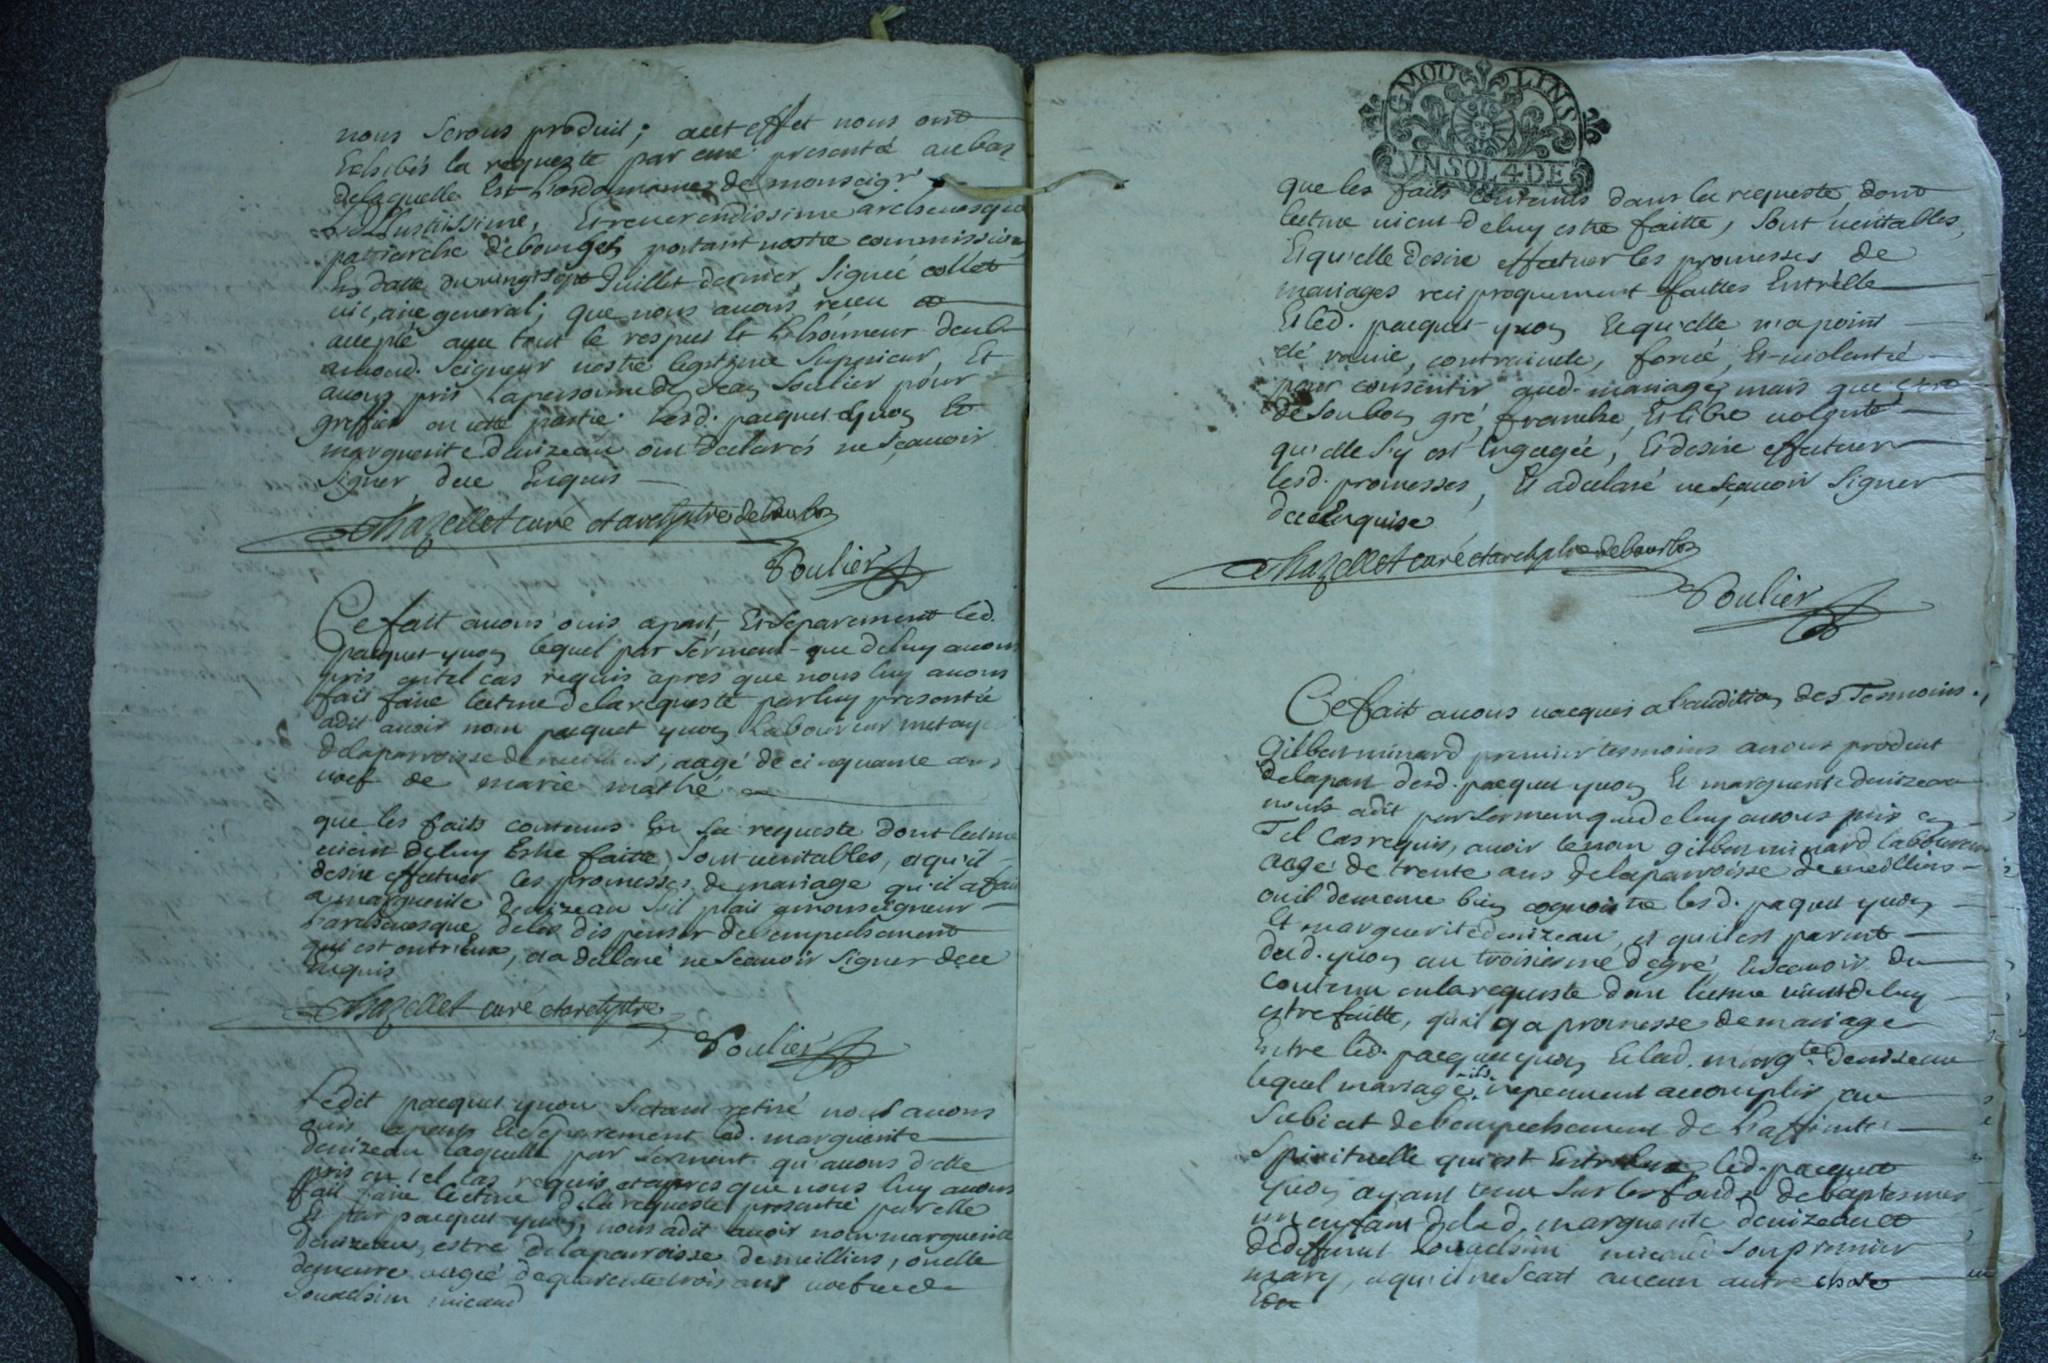 nous serons produit ; a cet effet nous ont
Exhibés la requeste par eux presenté au bas
de laquelle Est L'ordonnances de monseigr.
L'Illustrissime, Et reuerendissime archeuesque
patriarche de bourges portant nostre commission
En datte du vingt sept Juillet dernier, signée collet
vicaire general ; que nous auons receu et
accepté auec tout le respect Et L'honneur deub
a mond. seigneur nostre legitime superieur, Et
auons pris la personne de Jean Soulier pour
greffier en cette partie lesd. pacquet yuon Et
marguerite denizeau ont declarés ne scauoir
signer de ce Enquis
Chazellet curé et archiptre de bourbon
Soulier
Ce fait auons ouis apart Et separement led.
pacquet yuon lequel par serment que de luy auons
pris en tel cas requis apres que nous luy auons
fait faire lecture de la requeste par luy presentée
a dit auoir nom pacquet yuon Laboureur metayer
de la parroisse de meilliers, aagé de cinquante ans
voef de marie mathé
que les faits contenus En sa requeste dont lecture
vient de luy Estre faitte sont veritables, et qu'il
desire effectuer les promesses de mariage qu'il a fait
a marguerite denizeau s'il plait a monseigneur
L'archeuesque de les dispenser de l'empeschement
qui est entr'Eux, et a declaré ne scauoir signer de ce
Enquis
Chazellet curé et archiptre
Soulier
Ledit pacquet yuon s'etant retiré nous auons
ouis apart Et separement lad. marguerite
denizeau laquelle par serment qu'auons d'elle
pris en tel cas requis et apres que nous luy auons
fait faire lecture de la requeste presentée par elle
Et par pacquet yuon, nous a dit auoir nom marguerite
denizeau, estre de la parroisse de meilliers, ou elle
demeure aagée de quarente trois ans voefue de
Jouachim micaud
MOULINS
VN SOL 4 DE
que les faits contenus dans la requeste dont
lecture vient de luy estre faitte, sont veritables,
Et qu'elle desire effectuer les promesses de
mariages reciproquement faittes Entr'elle
Et led. pacquet yuon Et qu'elle n'a point
été rauie, contrainte, forcée, Et violentée
pour consentir aud. mariage, mais que c'est
de son bon gré, franche, Et libre volonté
qu'elle s'y est Engagée, Et desire effectuer
lesd. promesses, Et a declaré ne scauoir signer
de ce Enquise
Chazellet curé et archiptre de bourbon
Soulier
Ce fait auons vacqués a l'audition des Tesmoins.
Gilbert minard premier tesmoins a nous produit
de la part desd. pacquet yuon Et marguerite denizeau
nous a dit par serment que de luy auons pris en
Tel cas requis, auoir le nom gilbert minard laboureur
aagé de trente ans de la parroisse de meilliers
ou il demeure bien cognoistre lesd. paquet yuon
Et marguerite denizeau, et qu'il est parent
dud. yuon au troisieme degré, Et scauoir du
contenu en la requeste dont lecture vient de luy
estre faitte, qu'il y a promesse de mariage
Entre led. pacquet yuon Et lad. margte. denizeau
lequel mariage ils ne peuuent accomplir au
subiect de l'empeschement de L'affinité
spirituelle qui est Entr'Eux led. pacquet
yuon ayant tenu sur les fonds de baptesmes
un enfant de lad. marguerite denizeau Et
de deffunct Jouachim micaud son premier
mary, et qu'il ne scait aucun autre chose